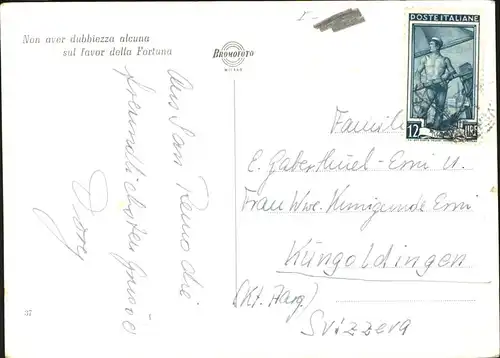 Non aver dubbiezza alcuna
sul favor della Fortuna
BROMOFOTO
MILANO
POSTE ITALIANE
12
LIRE
Aus San Remo die
freundlichsten Grüsse
Familie
E. Gaberthuel-Erni u.
Frau Wwe. Kunigunde Erni
Küngoldingen
(Kt. Aarg.)
Svizzera
37